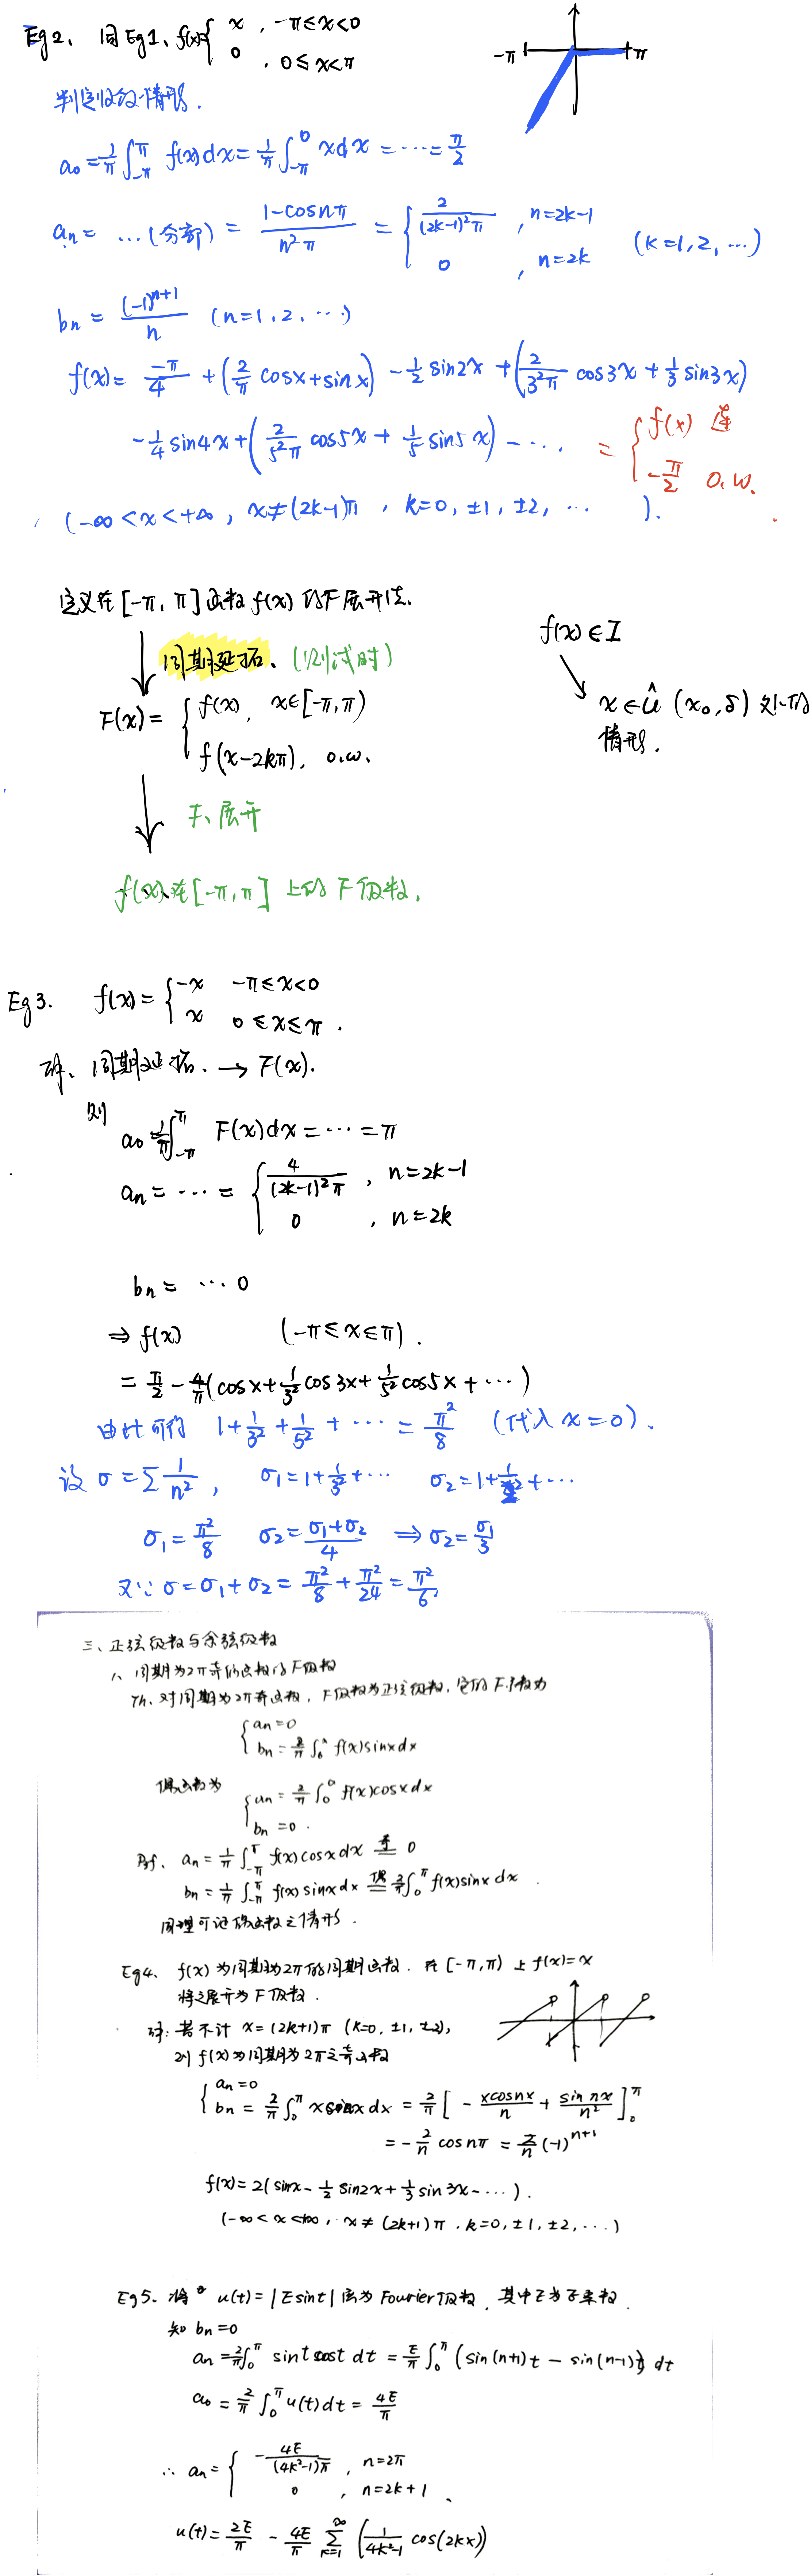 Eg2、 同Eg1、f(x){ x , -π≤x<0
0 , 0≤x<π
-π π
判定收敛情形.
a₀ = 1/π ∫_{-π}^{π} f(x)dx = 1/π ∫_{-π}^{0} xdx = ⋯ = π/2
aₙ = ⋯(分部) = (1-cosnπ)/(n²π) = { 2/((2k-1)²π) , n=2k-1
0 , n=2k (k=1,2,⋯)
bₙ = (-1)^{n+1}/n (n=1,2,⋯)
f(x) = -π/4 + (2/π cosx+sinx) - 1/2 sin2x + (2/(3²π) cos3x + 1/3 sin3x)
- 1/4 sin4x + (2/(5²π) cos5x + 1/5 sin5x) - ⋯ = { f(x) 连
-π/2 o.w.
(-∞<x<+∞, x≠(2k-1)π, k=0,±1,±2,⋯ ).
定义在[-π,π]函数f(x)的F展开法.
周期延拓、(以测试时)
F(x) = { f(x), x∈[-π,π)
f(x-2kπ), o.w.
F、展开
f(x)在[-π,π]上的F级数.
f(x)∈I
x∈Û(x₀,δ)处的
情形.
Eg3. f(x) = { -x -π≤x<0
x 0≤x≤π .
解、周期延拓. → F(x).
则
a₀ = 1/π ∫_{-π}^{π} F(x)dx = ⋯ = π
aₙ = ⋯ = { 4/((2k-1)²π) , n=2k-1
0 , n=2k
bₙ = ⋯ 0
⇒ f(x) (-π≤x≤π) .
= π/2 - 4/π(cosx+1/3² cos3x+1/5² cos5x+⋯)
由此可得 1+1/3²+1/5²+⋯ = π²/8 (代入x=0).
设 σ=∑1/n², σ₁=1+1/3²+⋯ σ₂=1+1/2²+⋯
σ₁=π²/8 σ₂=(σ₁+σ₂)/4 ⇒ σ₂=σ₁/3
又∵ σ=σ₁+σ₂=π²/8+π²/24=π²/6
三、正弦级数与余弦级数
1、周期为2π奇偶函数的F级数
Th、对周期为2π奇函数, F级数为正弦级数, 它的F系数为
{ aₙ=0
bₙ = 2/π ∫_0^π f(x)sinxdx
偶函数为
{ aₙ = 2/π ∫_0^π f(x)cosxdx
bₙ=0 .
Pf、 aₙ = 1/π ∫_{-π}^{π} f(x)cosxdx 奇= 0
bₙ = 1/π ∫_{-π}^{π} f(x)sinxdx 偶= 2/π ∫_0^π f(x)sinxdx .
同理可证偶函数之情形.
Eg4、 f(x)为周期为2π的周期函数. 在[-π,π)上f(x)=x
将之展开为F级数.
解: 若不计 x=(2k+1)π (k=0,±1,±2),
则 f(x)为周期为2π之奇函数
{ aₙ=0
bₙ = 2/π ∫_0^π xsinnxdx = 2/π [ -xcosnx/n + sinnx/n² ]_0^π
= -2/n cosnπ = 2/n (-1)^{n+1}
f(x)=2(sinx - 1/2 sin2x + 1/3 sin3x - ⋯).
(-∞<x<+∞, x≠(2k+1)π, k=0,±1,±2,⋯)
Eg5、将 u(t)=|Esint|展为Fourier级数, 其中E为正常数.
知 bₙ=0
aₙ = 2/π ∫_0^π sintcost dt = E/π ∫_0^π (sin(n+1)t - sin(n-1)t) dt
a₀ = 2/π ∫_0^π u(t)dt = 4E/π
∴ aₙ = { -4E/((4k²-1)π) , n=2π
0 , n=2k+1 .
u(t) = 2E/π - 4E/π ∑_{k=1}^{∞} (1/(4k²-1) cos(2kx))